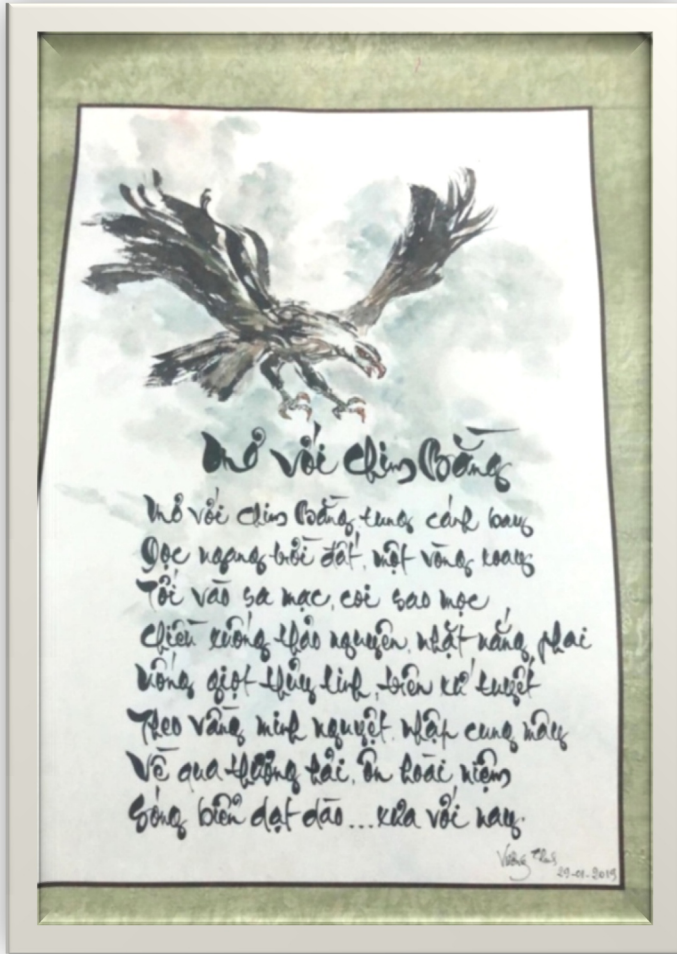 Mơ với chim Bằng
Mơ với chim Bằng tung cánh bay
Dọc ngang trời đất, một vòng xoay
Tối vào sa mạc, coi sao mọc
Chiều xuống thảo nguyên, nhặt nắng phai
Uống giọt thủy tinh, trên xứ tuyết
Theo vầng minh nguyệt, nhập cung mây
Về qua thượng hải, ôn hoài niệm
Sóng biển dạt dào...xưa với nay.
29-01-2019